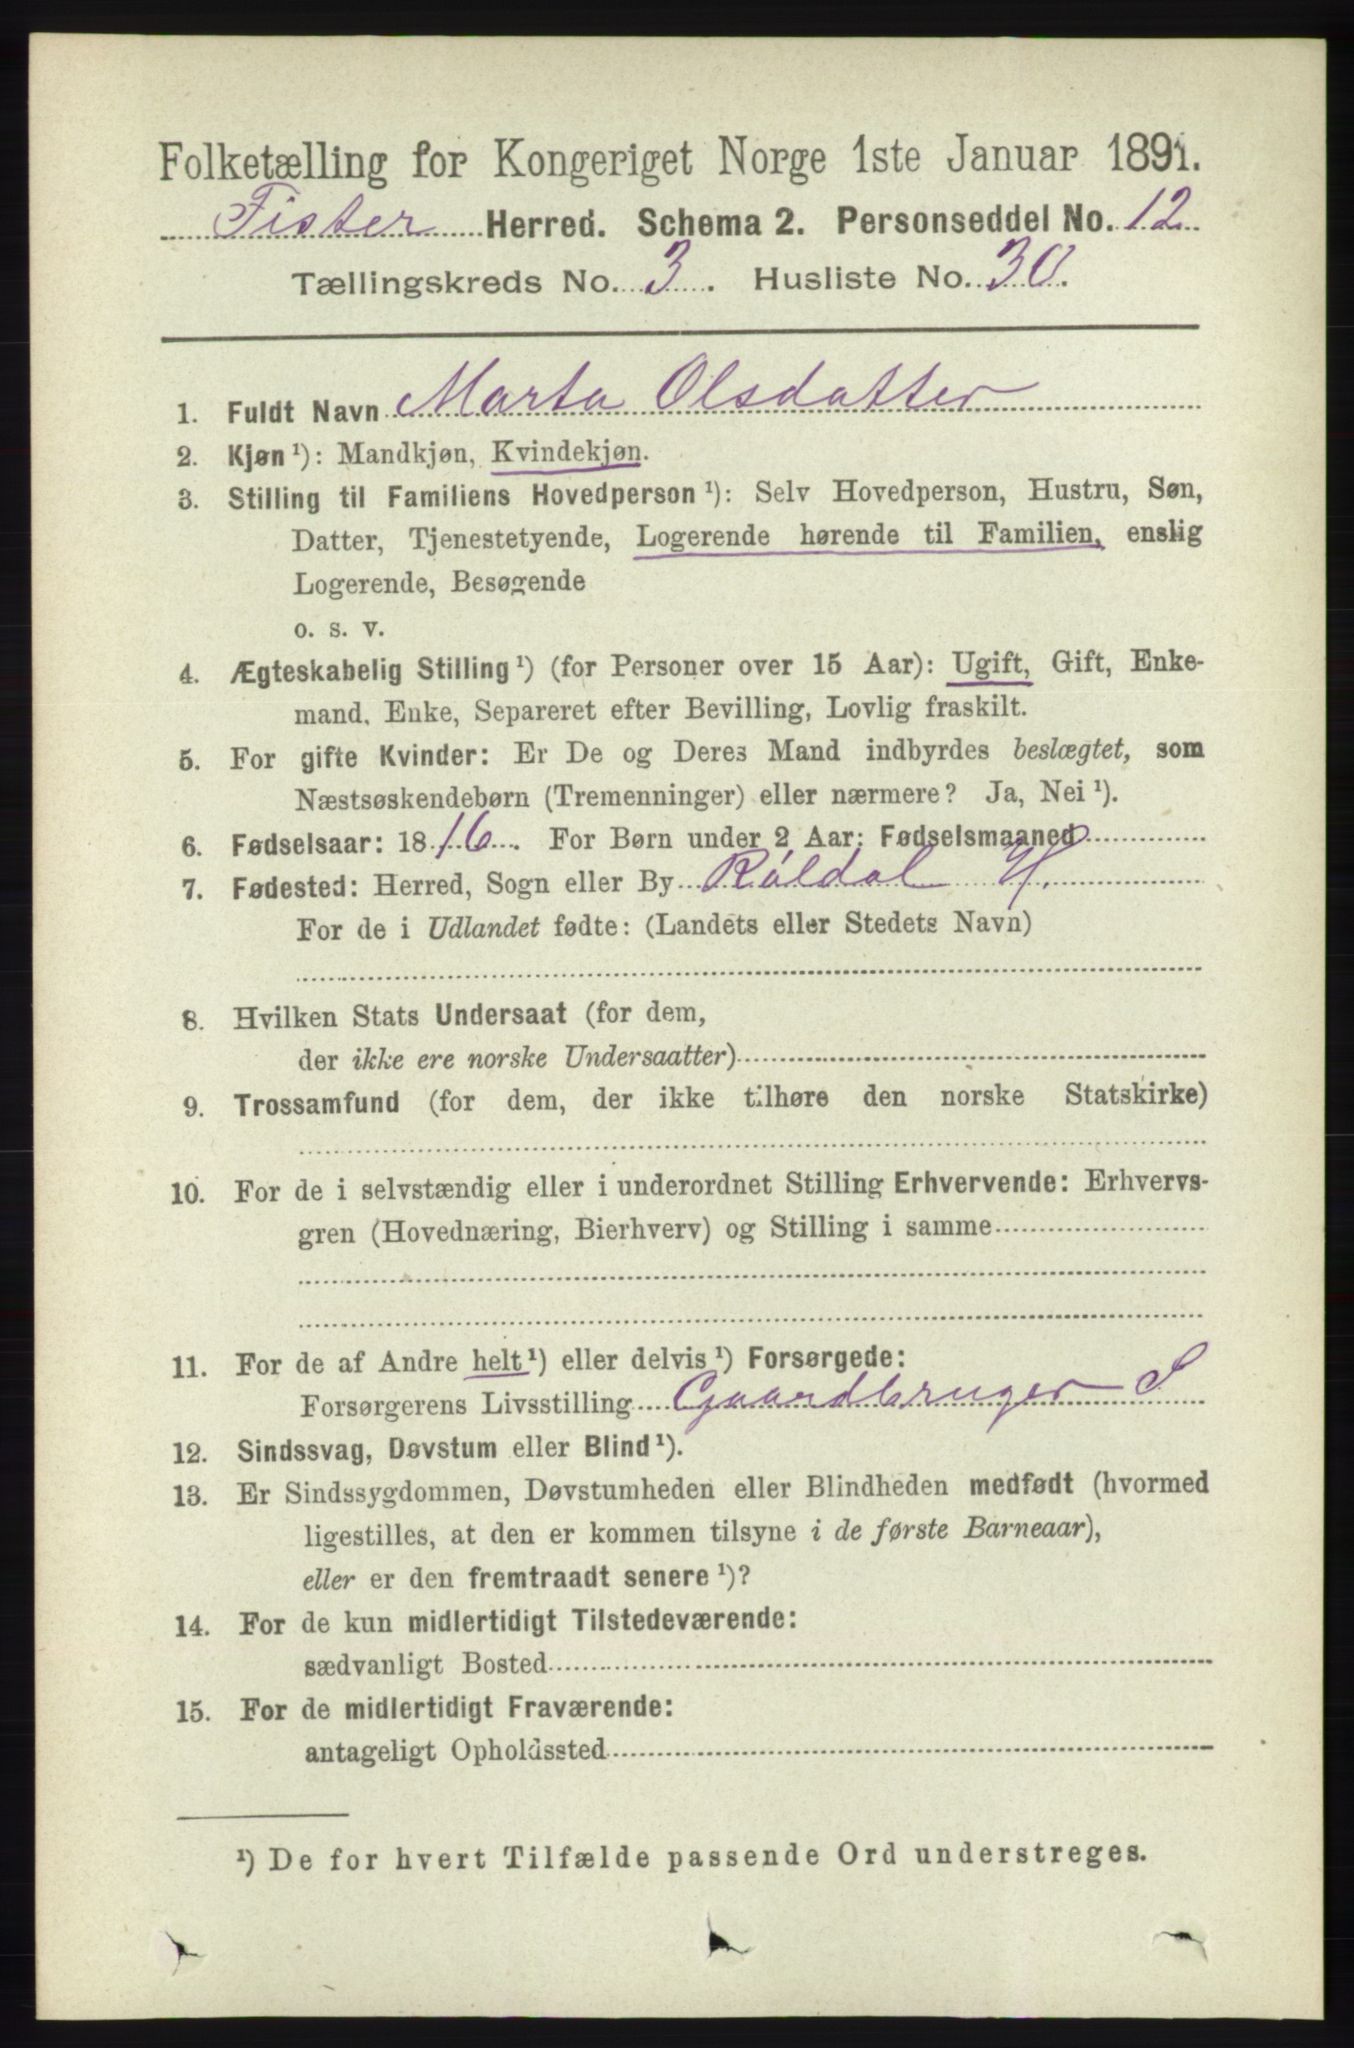 Folketælling for Kongeriget Norge 1ste Januar 1891.
Fister Herred. Schema 2. Personseddel No. 12
Tællingskreds No. 3. Husliste No. 30.
1. Fuldt Navn Marta Olsdatter
2. Kjøn ¹): Mandkjøn, Kvindekjøn.
3. Stilling til Familiens Hovedperson ¹): Selv Hovedperson, Hustru, Søn,
Datter, Tjenestetyende, Logerende hørende til Familien, enslig
Logerende, Besøgende
o. s. v.
4. Ægteskabelig Stilling ¹) (for Personer over 15 Aar): Ugift, Gift, Enke-
mand, Enke, Separeret efter Bevilling, Lovlig fraskilt.
5. For gifte Kvinder: Er De og Deres Mand indbyrdes beslægtet, som
Næstsøskendebørn (Tremenninger) eller nærmere? Ja, Nei ¹).
6. Fødselsaar: 1816. For Børn under 2 Aar: Fødselsmaaned
7. Fødested: Herred, Sogn eller By Røldal H.
For de i Udlandet fødte: (Landets eller Stedets Navn)
8. Hvilken Stats Undersaat (for dem,
der ikke ere norske Undersaatter)
9. Trossamfund (for dem, der ikke tilhøre den norske Statskirke)
10. For de i selvstændig eller i underordnet Stilling Erhvervende: Erhvervs-
gren (Hovednæring, Bierhverv) og Stilling i samme
11. For de af Andre helt ¹) eller delvis ¹) Forsørgede:
Forsørgerens Livsstilling Gaardbruger S
12. Sindssvag, Døvstum eller Blind ¹).
13. Er Sindssygdommen, Døvstumheden eller Blindheden medfødt (hvormed
ligestilles, at den er kommen tilsyne i de første Barneaar),
eller er den fremtraadt senere ¹)?
14. For de kun midlertidigt Tilstedeværende:
sædvanligt Bosted
15. For de midlertidigt Fraværende:
antageligt Opholdssted
¹) De for hvert Tilfælde passende Ord understreges.